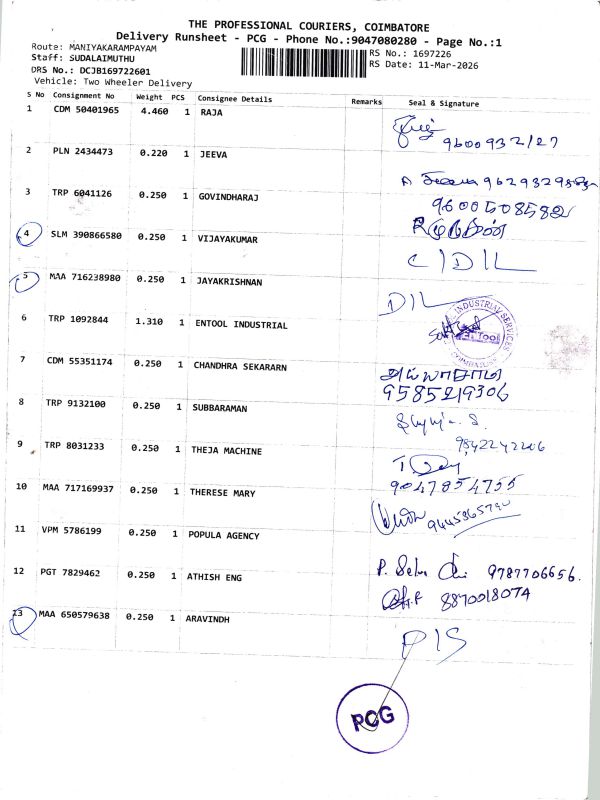 THE PROFESSIONAL COURIERS, COIMBATORE
Delivery Runsheet - PCG - Phone No.:9047080280 - Page No.:1
Route: MANIYAKARAMPAYAM
RS No.: 1697226
Staff: SUDALAIMUTHU
RS Date: 11-Mar-2026
DRS No.: DCJB169722601
Vehicle: Two Wheeler Delivery
S No Consignment No Weight PCS Consignee Details Remarks Seal & Signature
1 CDM 50401965 4.460 1 RAJA
9600932127
2 PLN 2434473 0.220 1 JEEVA
3 TRP 6041126 0.250 1 GOVINDHARAJ
9600508582
4 SLM 390866580 0.250 1 VIJAYAKUMAR
C/DIL
5 MAA 716238980 0.250 1 JAYAKRISHNAN
DIL
6 TRP 1092844 1.310 1 ENTOOL INDUSTRIAL
INDUSTRIAL SERVICES
Tool
7 CDM 55351174 0.250 1 CHANDHRA SEKARARN
அய்யாசாமி
9585219306
8 TRP 9132100 0.250 1 SUBBARAMAN
9842242206
9 TRP 8031233 0.250 1 THEJA MACHINE
9047854755
10 MAA 717169937 0.250 1 THERESE MARY
11 VPM 5786199 0.250 1 POPULA AGENCY
P. Selva 9787706656.
12 PGT 7829462 0.250 1 ATHISH ENG
8870018074
13 MAA 650579638 0.250 1 ARAVINDH
PIS
PCG